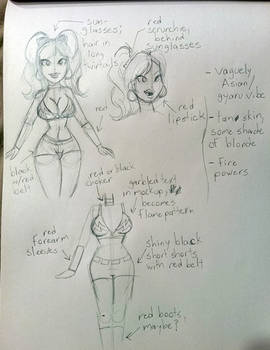 sun-
glasses;
hair in
long
twintails
red
scrunchie
behind
sunglasses
red
red
lipstick
- vaguely
Asian/
gyaru vibe
- tan skin,
some shade
of blonde
- fire
powers
black
w/red
belt
red or black
choker
garbled text
in mockup,
becomes
flame pattern
red
forearm
sleeves
shiny black
short shorts
with red belt
red boots,
maybe?